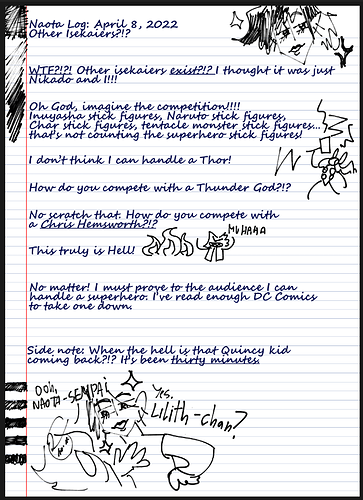 Naota Log: April 8, 2022
Other Isekaiers?!?
WTF?!?! Other isekaiers exist?!? I thought it was just
Nikado and I!!!
Oh God, imagine the competition!!!!
Inuyasha stick figures, Naruto stick figures,
Char stick figures, tentacle monster stick figures...
that's not counting the superhero stick figures!
I don't think I can handle a Thor!
How do you compete with a Thunder God?!?
No scratch that. How do you compete with
a Chris Hemsworth?!?
MUHAHA
This truly is Hell!
No matter! I must prove to the audience I can
handle a superhero. I've read enough DC Comics
to take one down.
Side note: When the hell is that Quincy kid
coming back?!? It's been thirty minutes.
Ooh,
NAOTA-SEMPAI
Yes,
Lilith-chan?